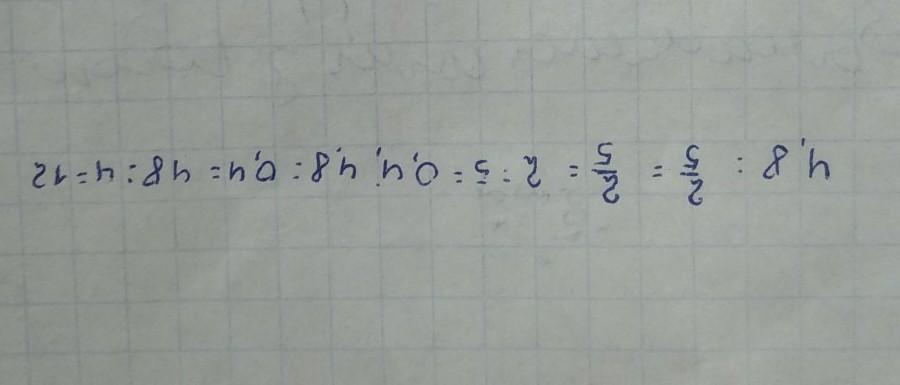 4,8 : 2/5 = 2/5 = 2 : 5 = 0,4; 4,8 : 0,4 = 48 : 4 = 12